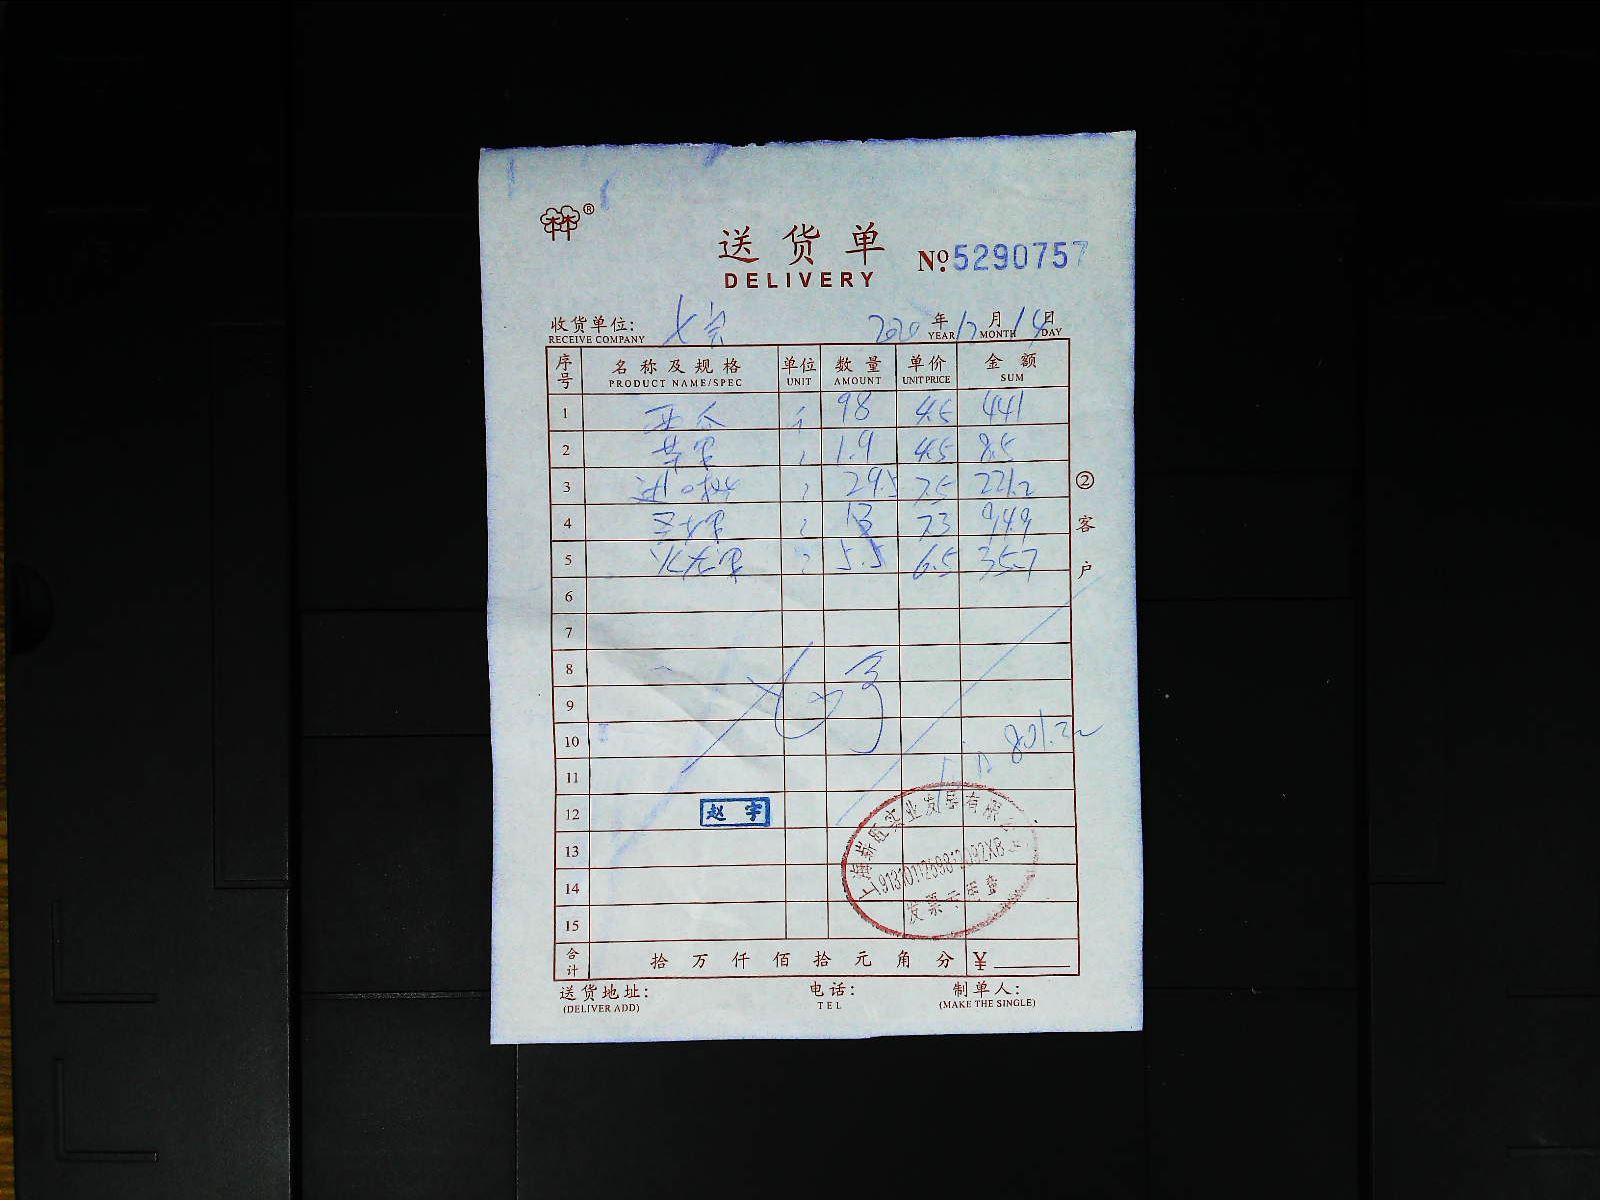 ®
送货单
DELIVERY
№ 5290757
收货单位:
RECEIVE COMPANY
2020 年 12 月 14 日
YEAR MONTH DAY
序号 名称及规格 单位 数量 单价 金额
PRODUCT NAME/SPEC UNIT AMOUNT UNIT PRICE SUM
1 98 4.5 441
2 1.9 4.5 8.5
3 29.5 7.5 221.2
4 13 7.3 94.9
5 5.5 6.5 35.7
6
7
8
9
10 801.3
11
12 赵宇
13
14
15
②客户
发票专用章
合计 拾万仟佰拾元角分 ¥
送货地址: 电话: 制单人:
(DELIVER ADD) TEL (MAKE THE SINGLE)